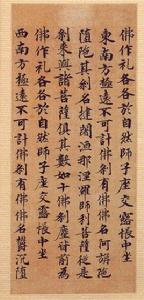 佛作礼各各於自然師子座交露帳中坐
東南方極遠不可計佛刹有佛佛名阿旃陁
陁陁其刹名捷闍洹那涅羅師利菩薩從是
刹来與諸菩薩俱其數如十佛刹塵甘前爲
佛作礼各各於自然師子座交露帳中坐
西南方極遠不可計佛刹有佛佛名欝沉陁